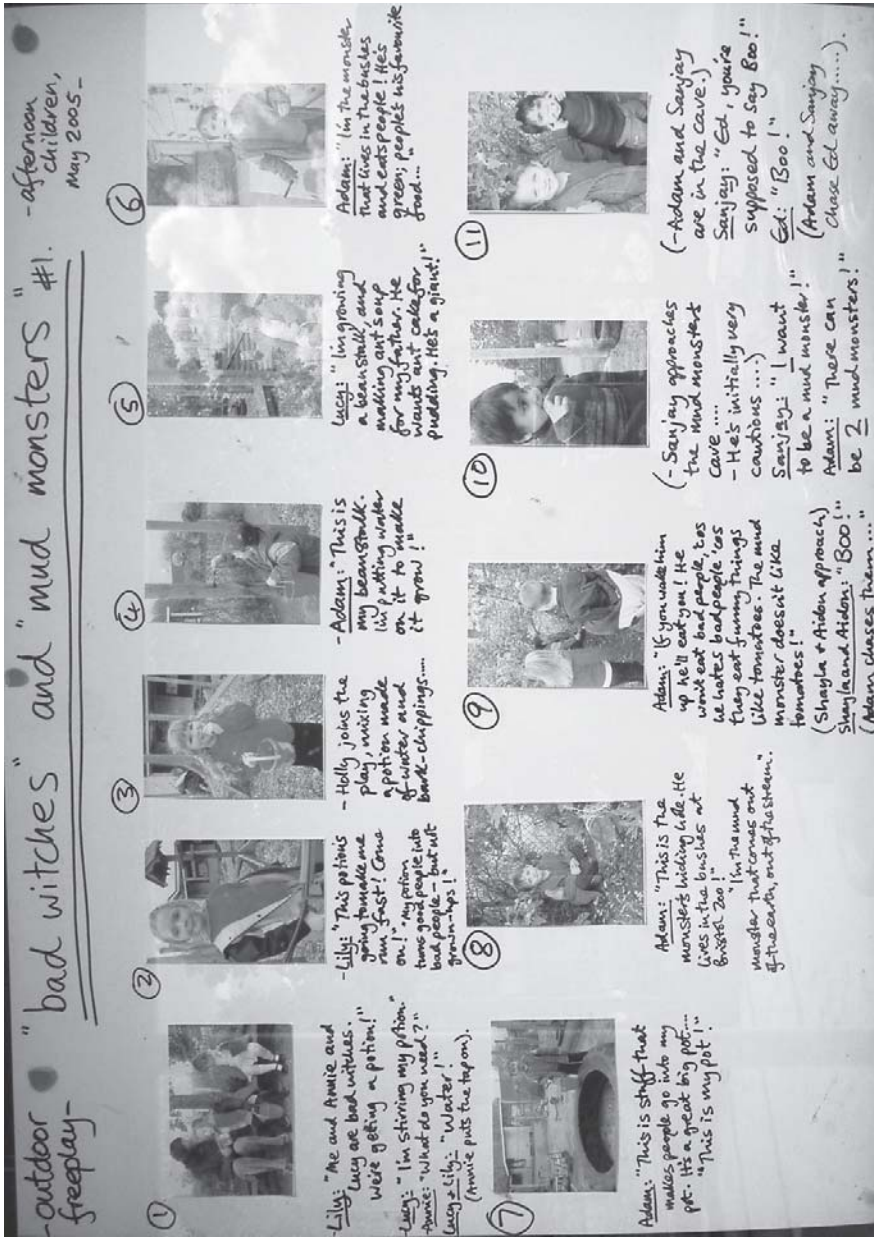 -outdoor
freeplay-
"bad witches" and "mud monsters" #1.
-afternoon
children,
May 2005-
1
-Lily: "Me and Annie and
Lucy are bad witches.
We're getting a potion!"
-Lucy: "I'm stirring my potion."
-Annie: "What do you need?"
Lucy + Lily: "Water!"
(Annie puts the tap on).
2
-Lily: "This potion's
going to make me
run fast! Come
on!" "My potion
turns good people into
bad people - but not
grown-ups!"
3
- Holly joins the
play, mixing
a potion made
of water and
bark-chippings....
4
-Adam: "This is
my beanstalk.
I'm putting water
on it to make
it grow!"
5
Lucy: "I'm growing
a beanstalk, and
making ant soup
for my father. He
wants ant cake for
pudding. He's a giant!"
6
Adam: "I'm the monster
that lives in the bushes
and eats people! He's
green; people's his favourite
food..."
7
Adam: "This is stuff that
makes people go into my
pot. It's a great big pot....
"This is my pot!"
8
Adam: "This is the
monster's hiding hole. He
lives in the bushes at
Bristol Zoo!"
"I'm the mud
monster that comes out
of the earth, out of the stream."
9
Adam: "If you wake him
up he'll eat you! He
won't eat bad people, 'cos
he hates bad people 'cos
they eat funny things
like tomatoes. The mud
monster doesn't like
tomatoes!"
(Shayla + Aidon approach)
Shayla and Aidon: "BOO!"
(Adam chases them..."
10
(- Sanjay approaches
the mud monsters
cave ....
- He's initially very
cautions ....)
Sanjay: "I want
to be a mud monster!"
Adam: "There can
be 2 mud monsters!"
11
(-Adam and Sanjay
are in the cave.)
Sanjay: "Ed, you're
supposed to say Boo!"
Ed: "Boo!"
(Adam and Sanjay
chase Ed away.....).